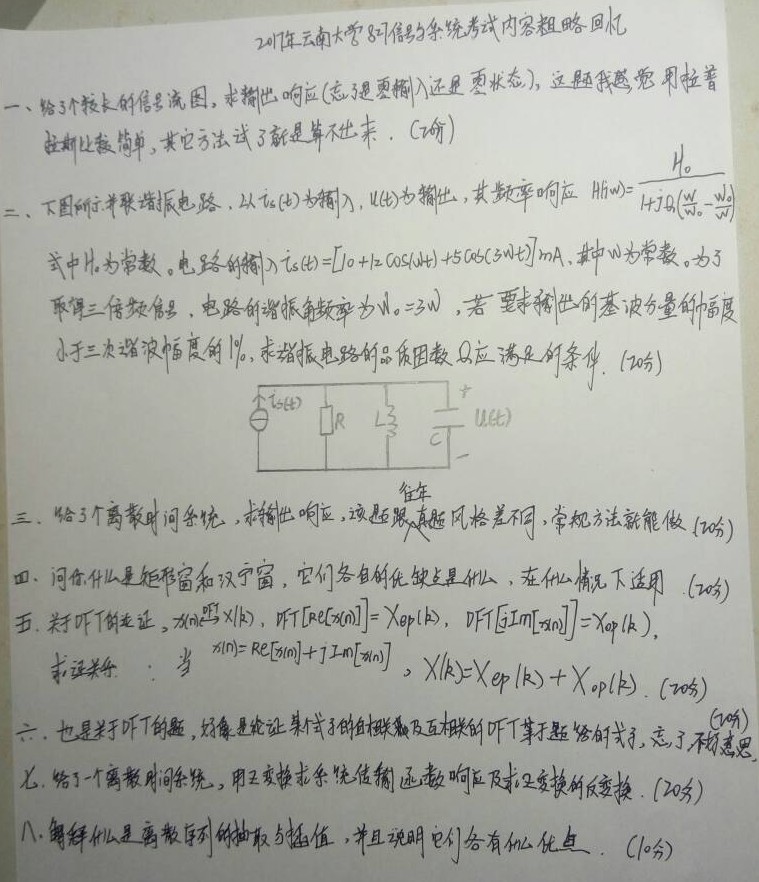 2017年云南大学827信号与系统考试内容粗略回忆
一、给了个较长的信号流图，求输出响应(忘了是零输入还是零状态)，这题我感觉用拉普
拉斯比较简单，其它方法试了就是算不出来．(20分)
二、下图所示并联谐振电路，以is(t)为输入，u(t)为输出，其频率响应 H(jw)=H₀/(1+jQ(w/w₀-w₀/w))
式中H₀为常数。电路的输入is(t)=[10+12cos(wt)+5cos(3wt)]mA，其中w为常数。为了
取得三倍频信号，电路的谐振角频率为w₀=3w，若要求输出的基波分量的幅度
小于三次谐波幅度的1%，求谐振电路的品质因数Q应满足的条件．(20分)
is(t) R L C + u(t) -
三、给了个离散时间系统，求输出响应，该题跟往年真题风格差不同，常规方法就能做(20分)
四、问你什么是矩形窗和汉宁窗，它们各自的优缺点是什么，在什么情况下适用．(20分)
五、关于DFT的论证，x(n) DFT X(k)，DFT[Re[x(n)]]=Xep(k)，DFT[jIm[x(n)]]=Xop(k)，
求证关系：当 x(n)=Re[x(n)]+jIm[x(n)]，X(k)=Xep(k)+Xop(k)．(20分)
六、也是关于DFT的题，好像是论证某个式子的自相关及互相关的DFT等于题给的式子，忘了，不好意思．(20分)
七、给了一个离散时间系统，用Z变换求系统传输函数响应及求Z变换的反变换．(20分)
八、解释什么是离散序列的抽取与插值，并且说明它们各有什么优点．(10分)